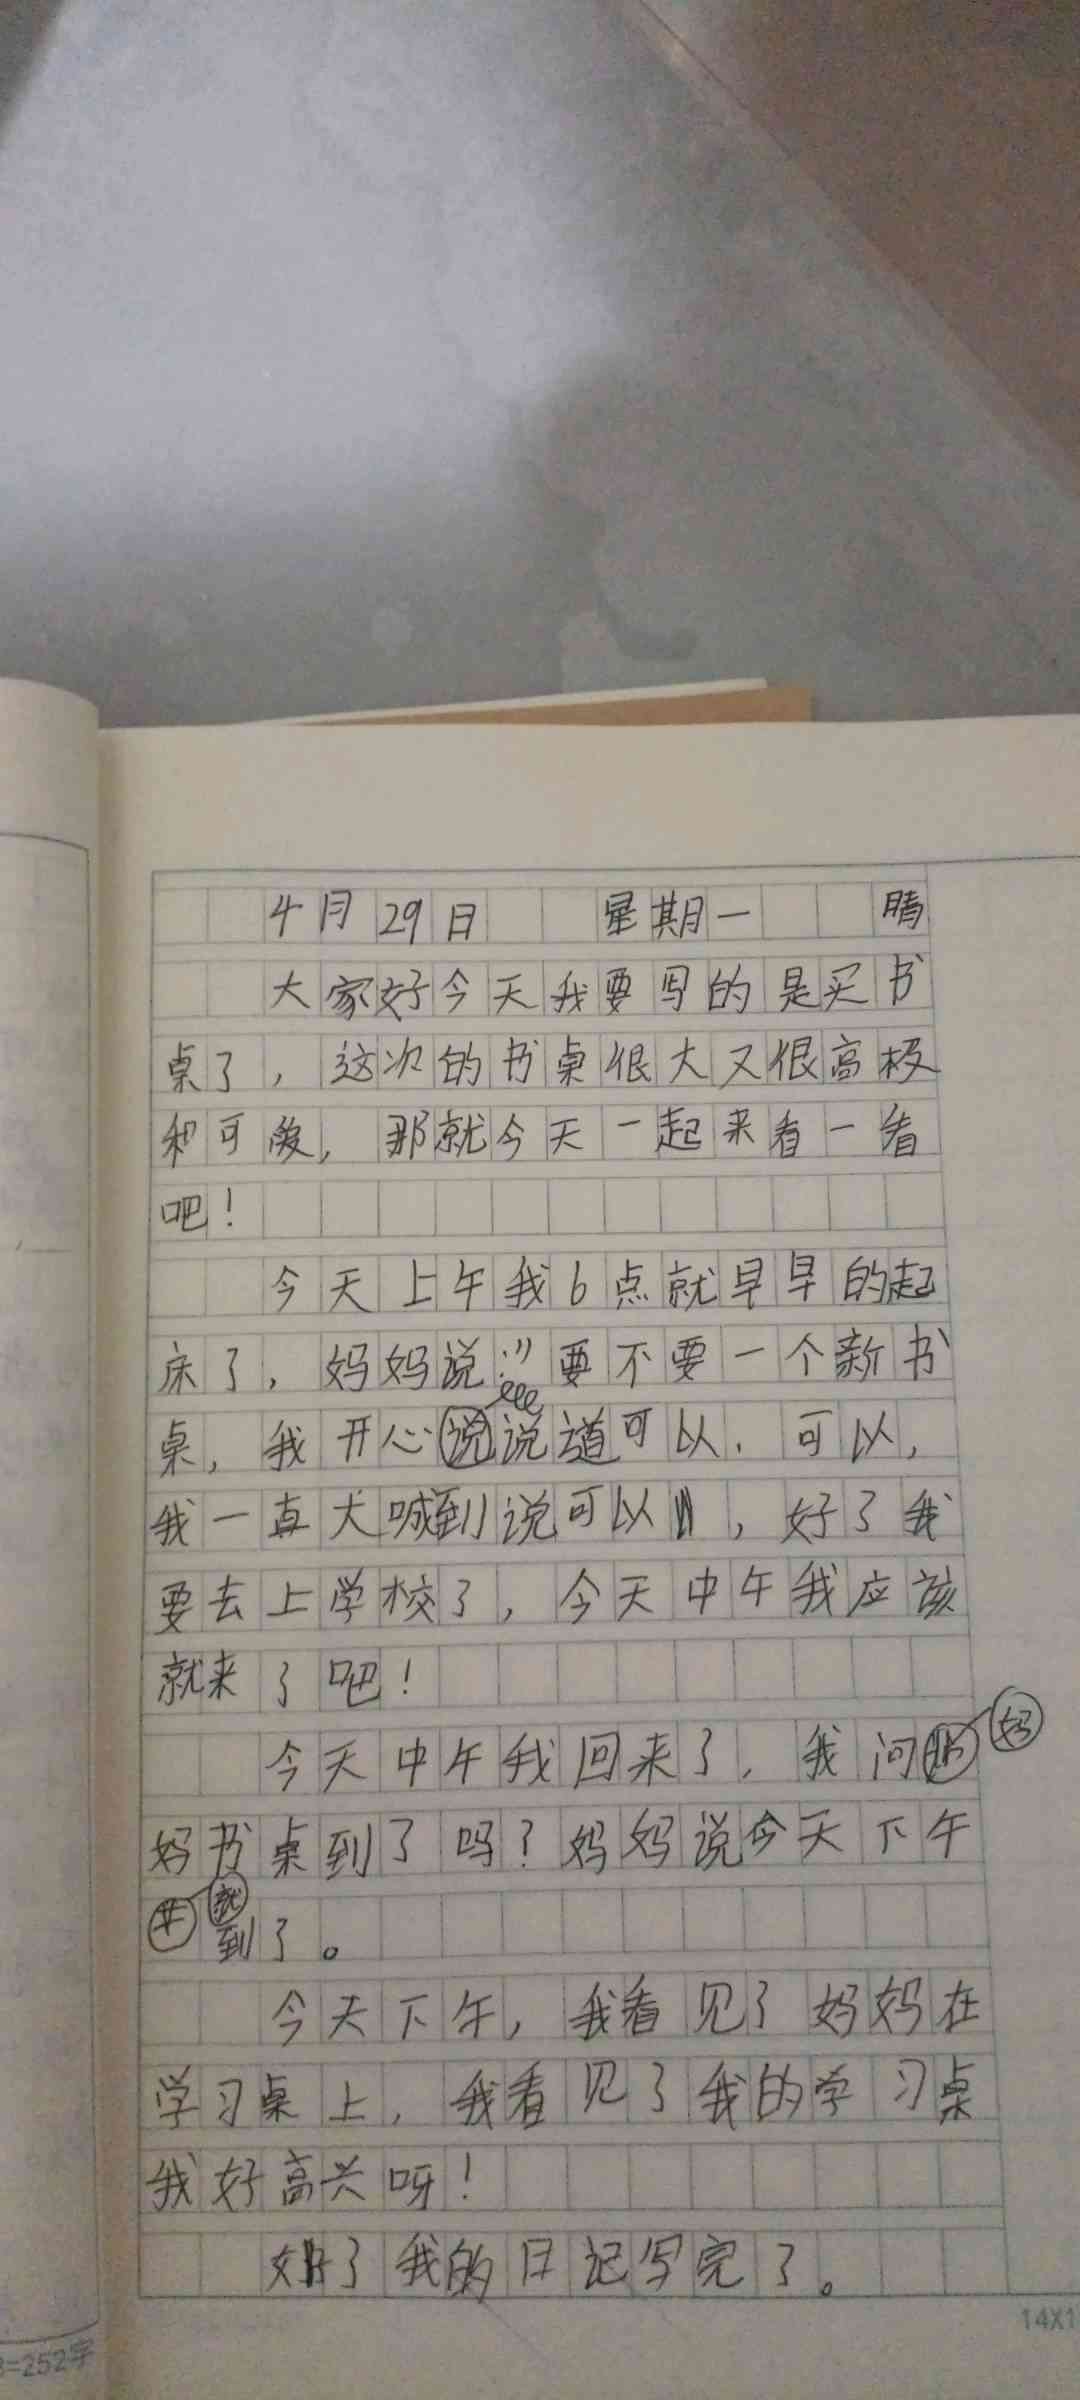 4月29日 星期一 晴
大家好今天我要写的是买书
桌了，这次的书桌很大又很高极
和可爱，那就今天一起来看一看
吧！
今天上午我6点就早早的起
床了，妈妈说：“要不要一个新书
桌，我开心说说道可以，可以，
我一直大喊到说可以，好了我
要去上学校了，今天中午我应该
就来了吧！
今天中午我回来了，我问妈
妈书桌到了吗？妈妈说今天下午
就
到了。
今天下午，我看见了妈妈在
学习桌上，我看见了我的学习桌
我好高兴呀！
好了我的日记写完了。
14X1
8=252字